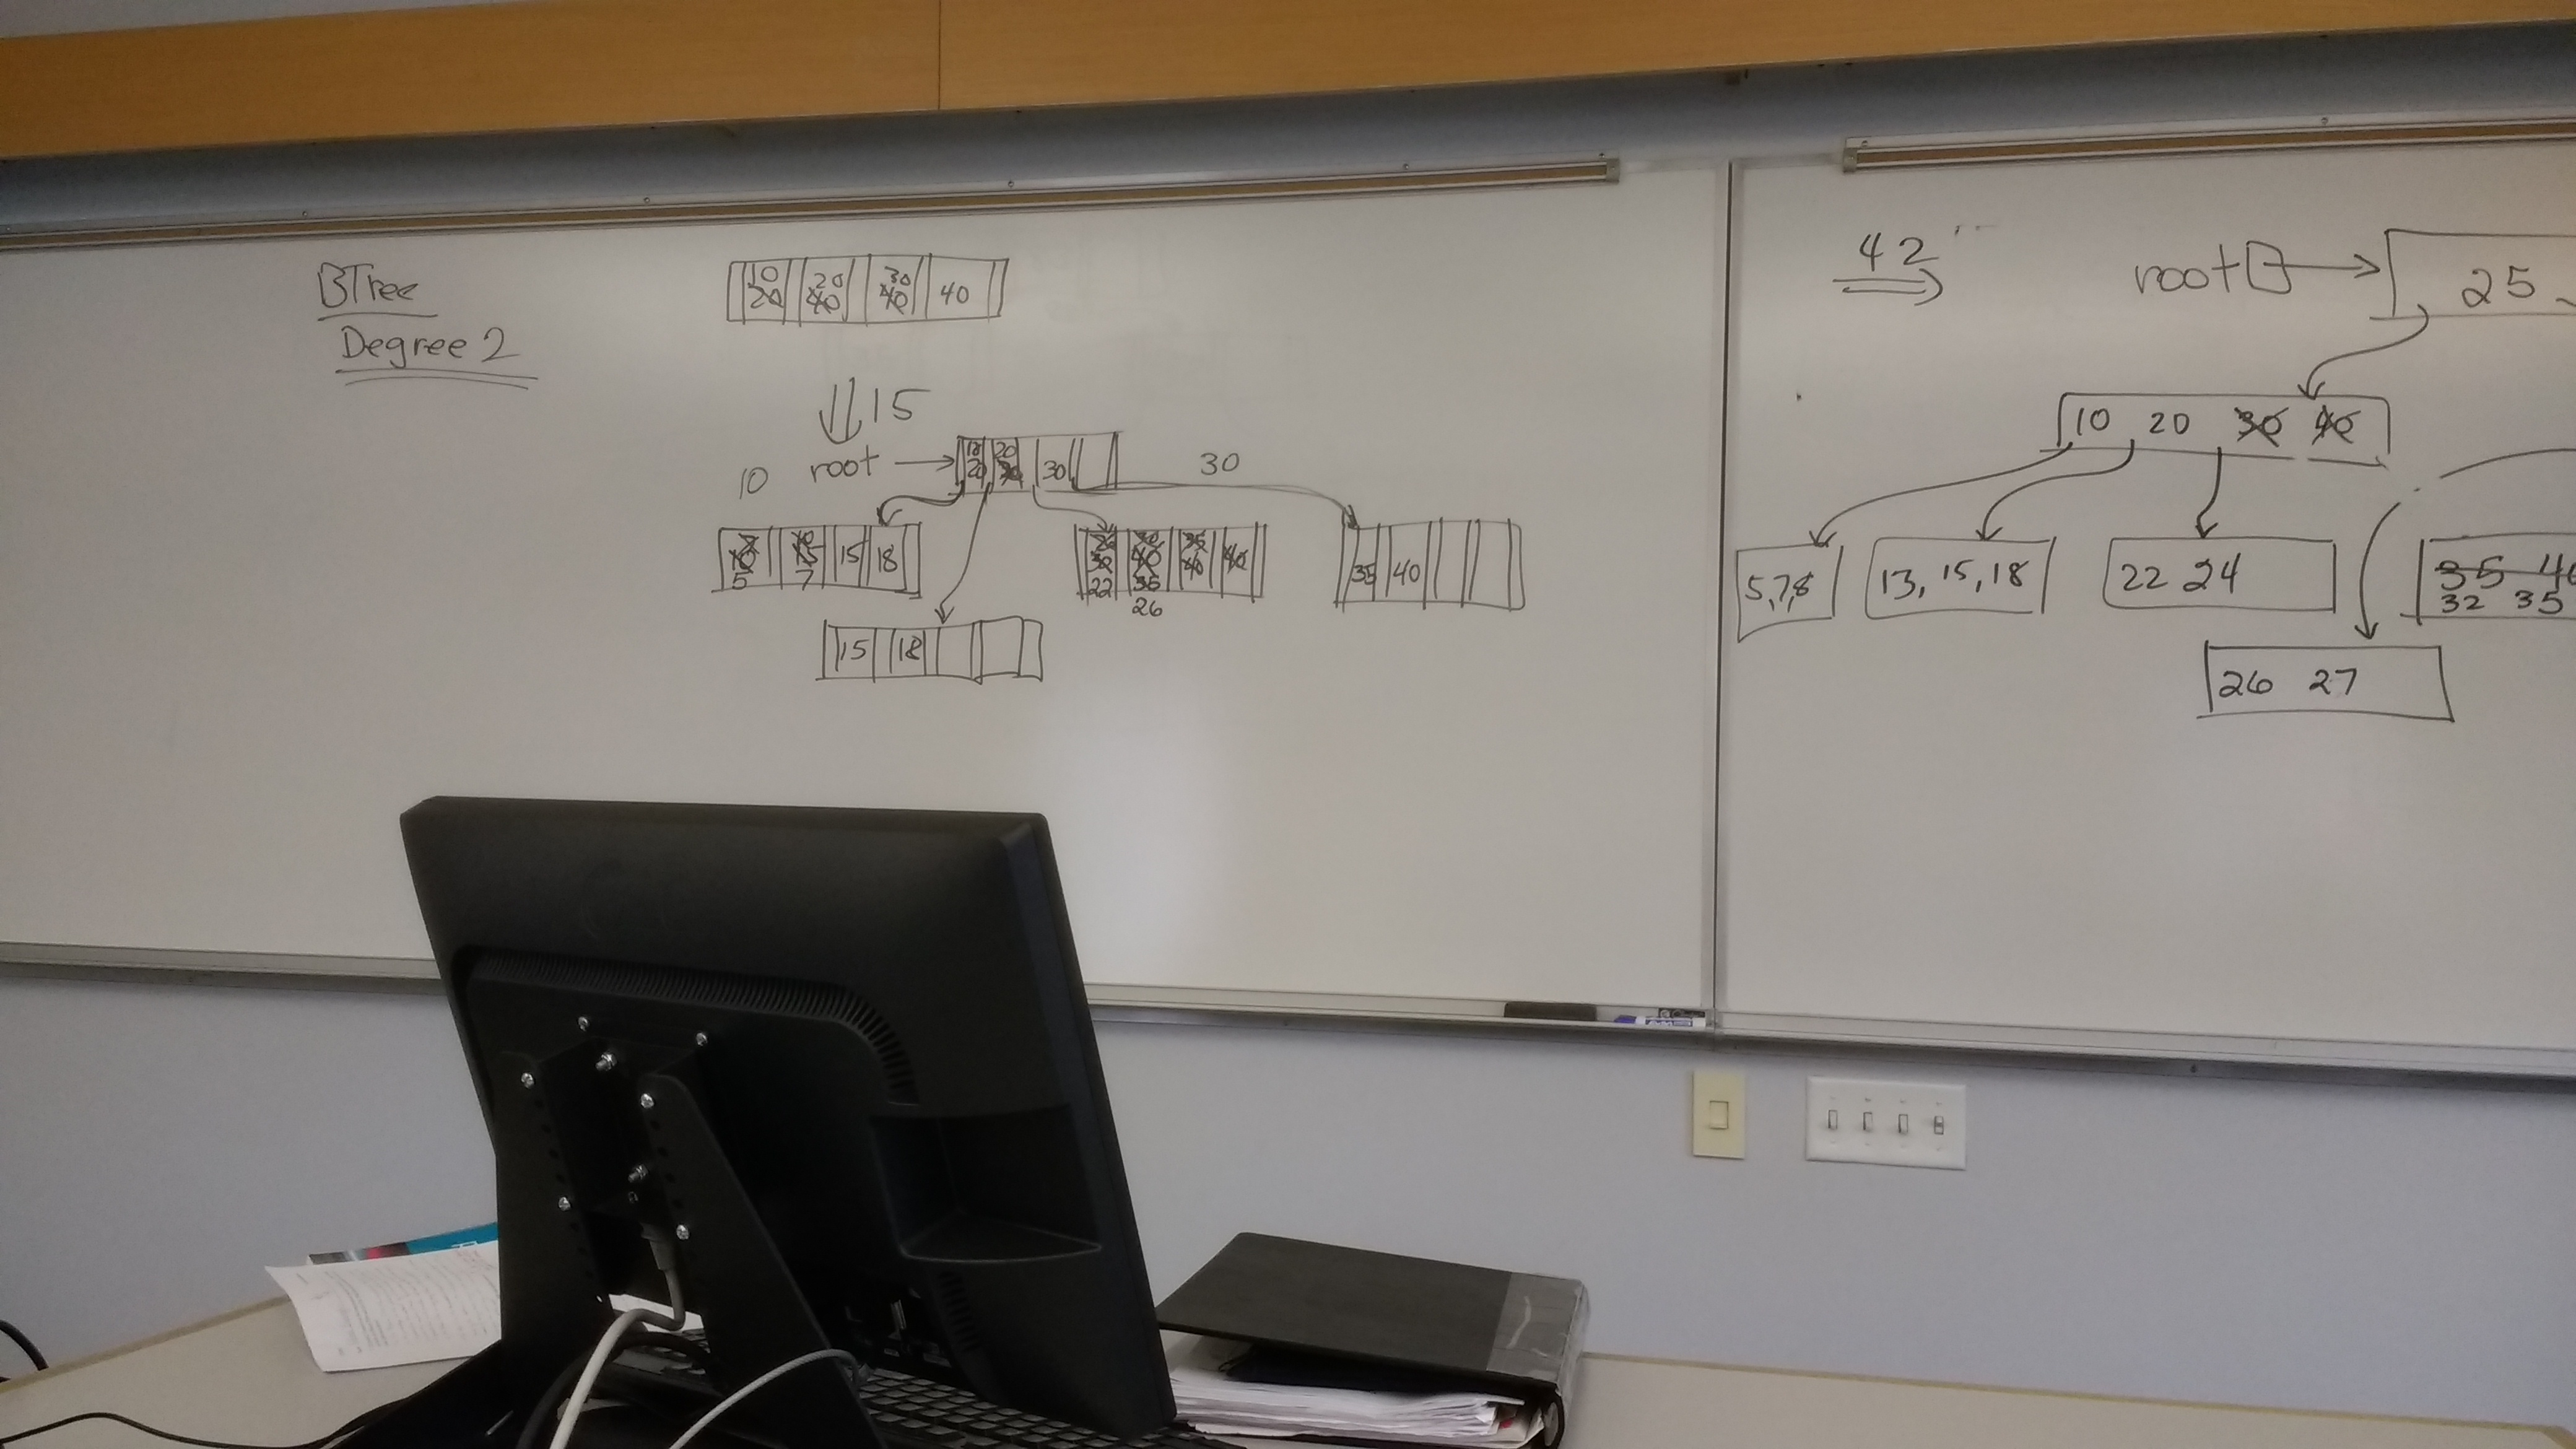 BTree
Degree 2
10 20 30
20 40 40 40
15
10 root 10 20 30
20 30
10 15 15 18
5 7
30 40 35 40
22 35 40
26
35 40
15 18
42
root 25
10 20 30 40
5,7,8 13, 15, 18 22 24 35 40
32 35
26 27